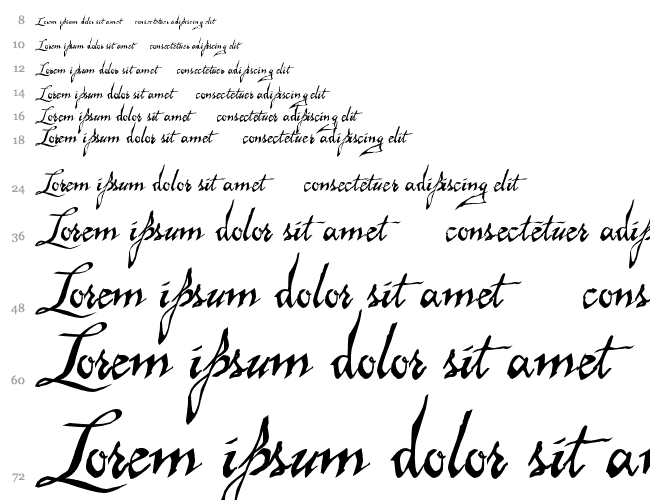 8 Lorem ipsum dolor sit amet consectetuer adipiscing elit
10 Lorem ipsum dolor sit amet consectetuer adipiscing elit
12 Lorem ipsum dolor sit amet consectetuer adipiscing elit
14 Lorem ipsum dolor sit amet consectetuer adipiscing elit
16 Lorem ipsum dolor sit amet consectetuer adipiscing elit
18 Lorem ipsum dolor sit amet consectetuer adipiscing elit
24 Lorem ipsum dolor sit amet consectetuer adipiscing elit
36 Lorem ipsum dolor sit amet consectetuer adip
48 Lorem ipsum dolor sit amet cons
60 Lorem ipsum dolor sit amet
72 Lorem ipsum dolor sit am